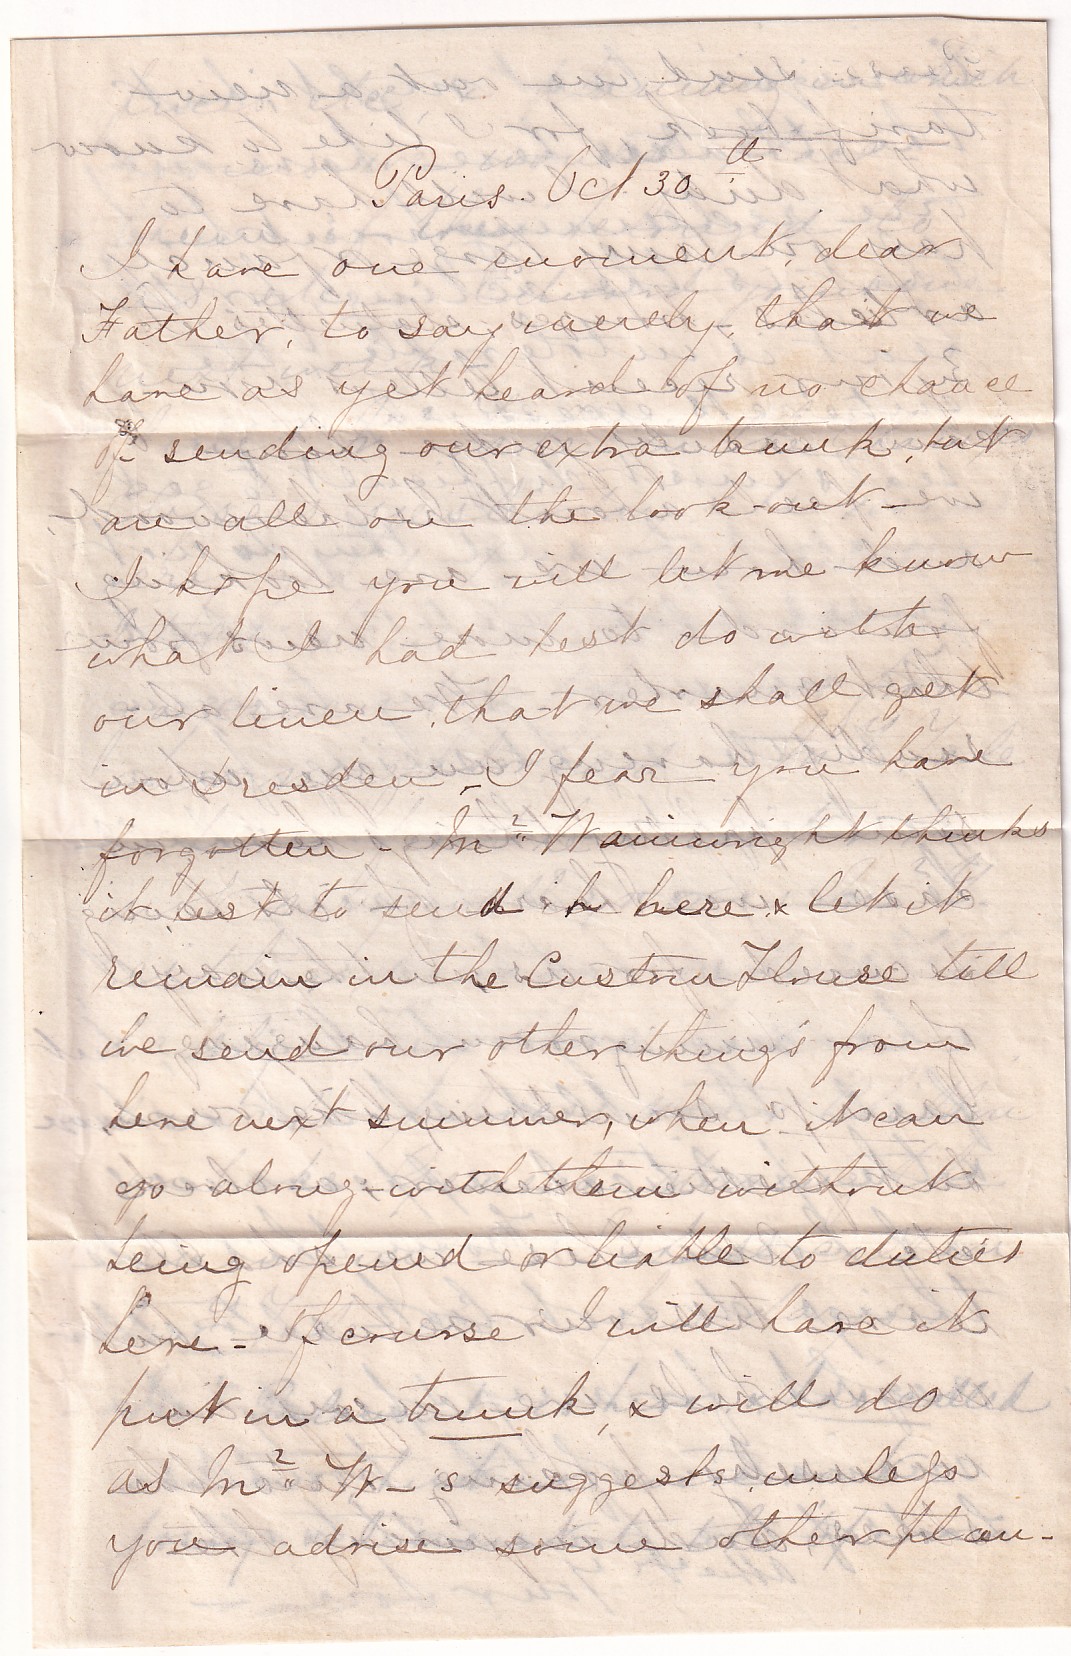 Paris. Oct 30th
I have one moment, dear
Father, to say merely, that we
have as yet heard of no chance
of sending our extra trunk, but
are all on the look-out -
I hope you will let me know
what I had best do with
our linen, that we shall get
in Dresden - I fear you have
forgotten - Mr Wainwright thinks
it best to send it here & let it
remain in the Custom House till
we send our other things from
here next summer, when it can
go along with them without
being opened or liable to duties
here - Of course I will have it
put in a trunk, & will do
as Mr W-s suggests unless
you advise some other plan -